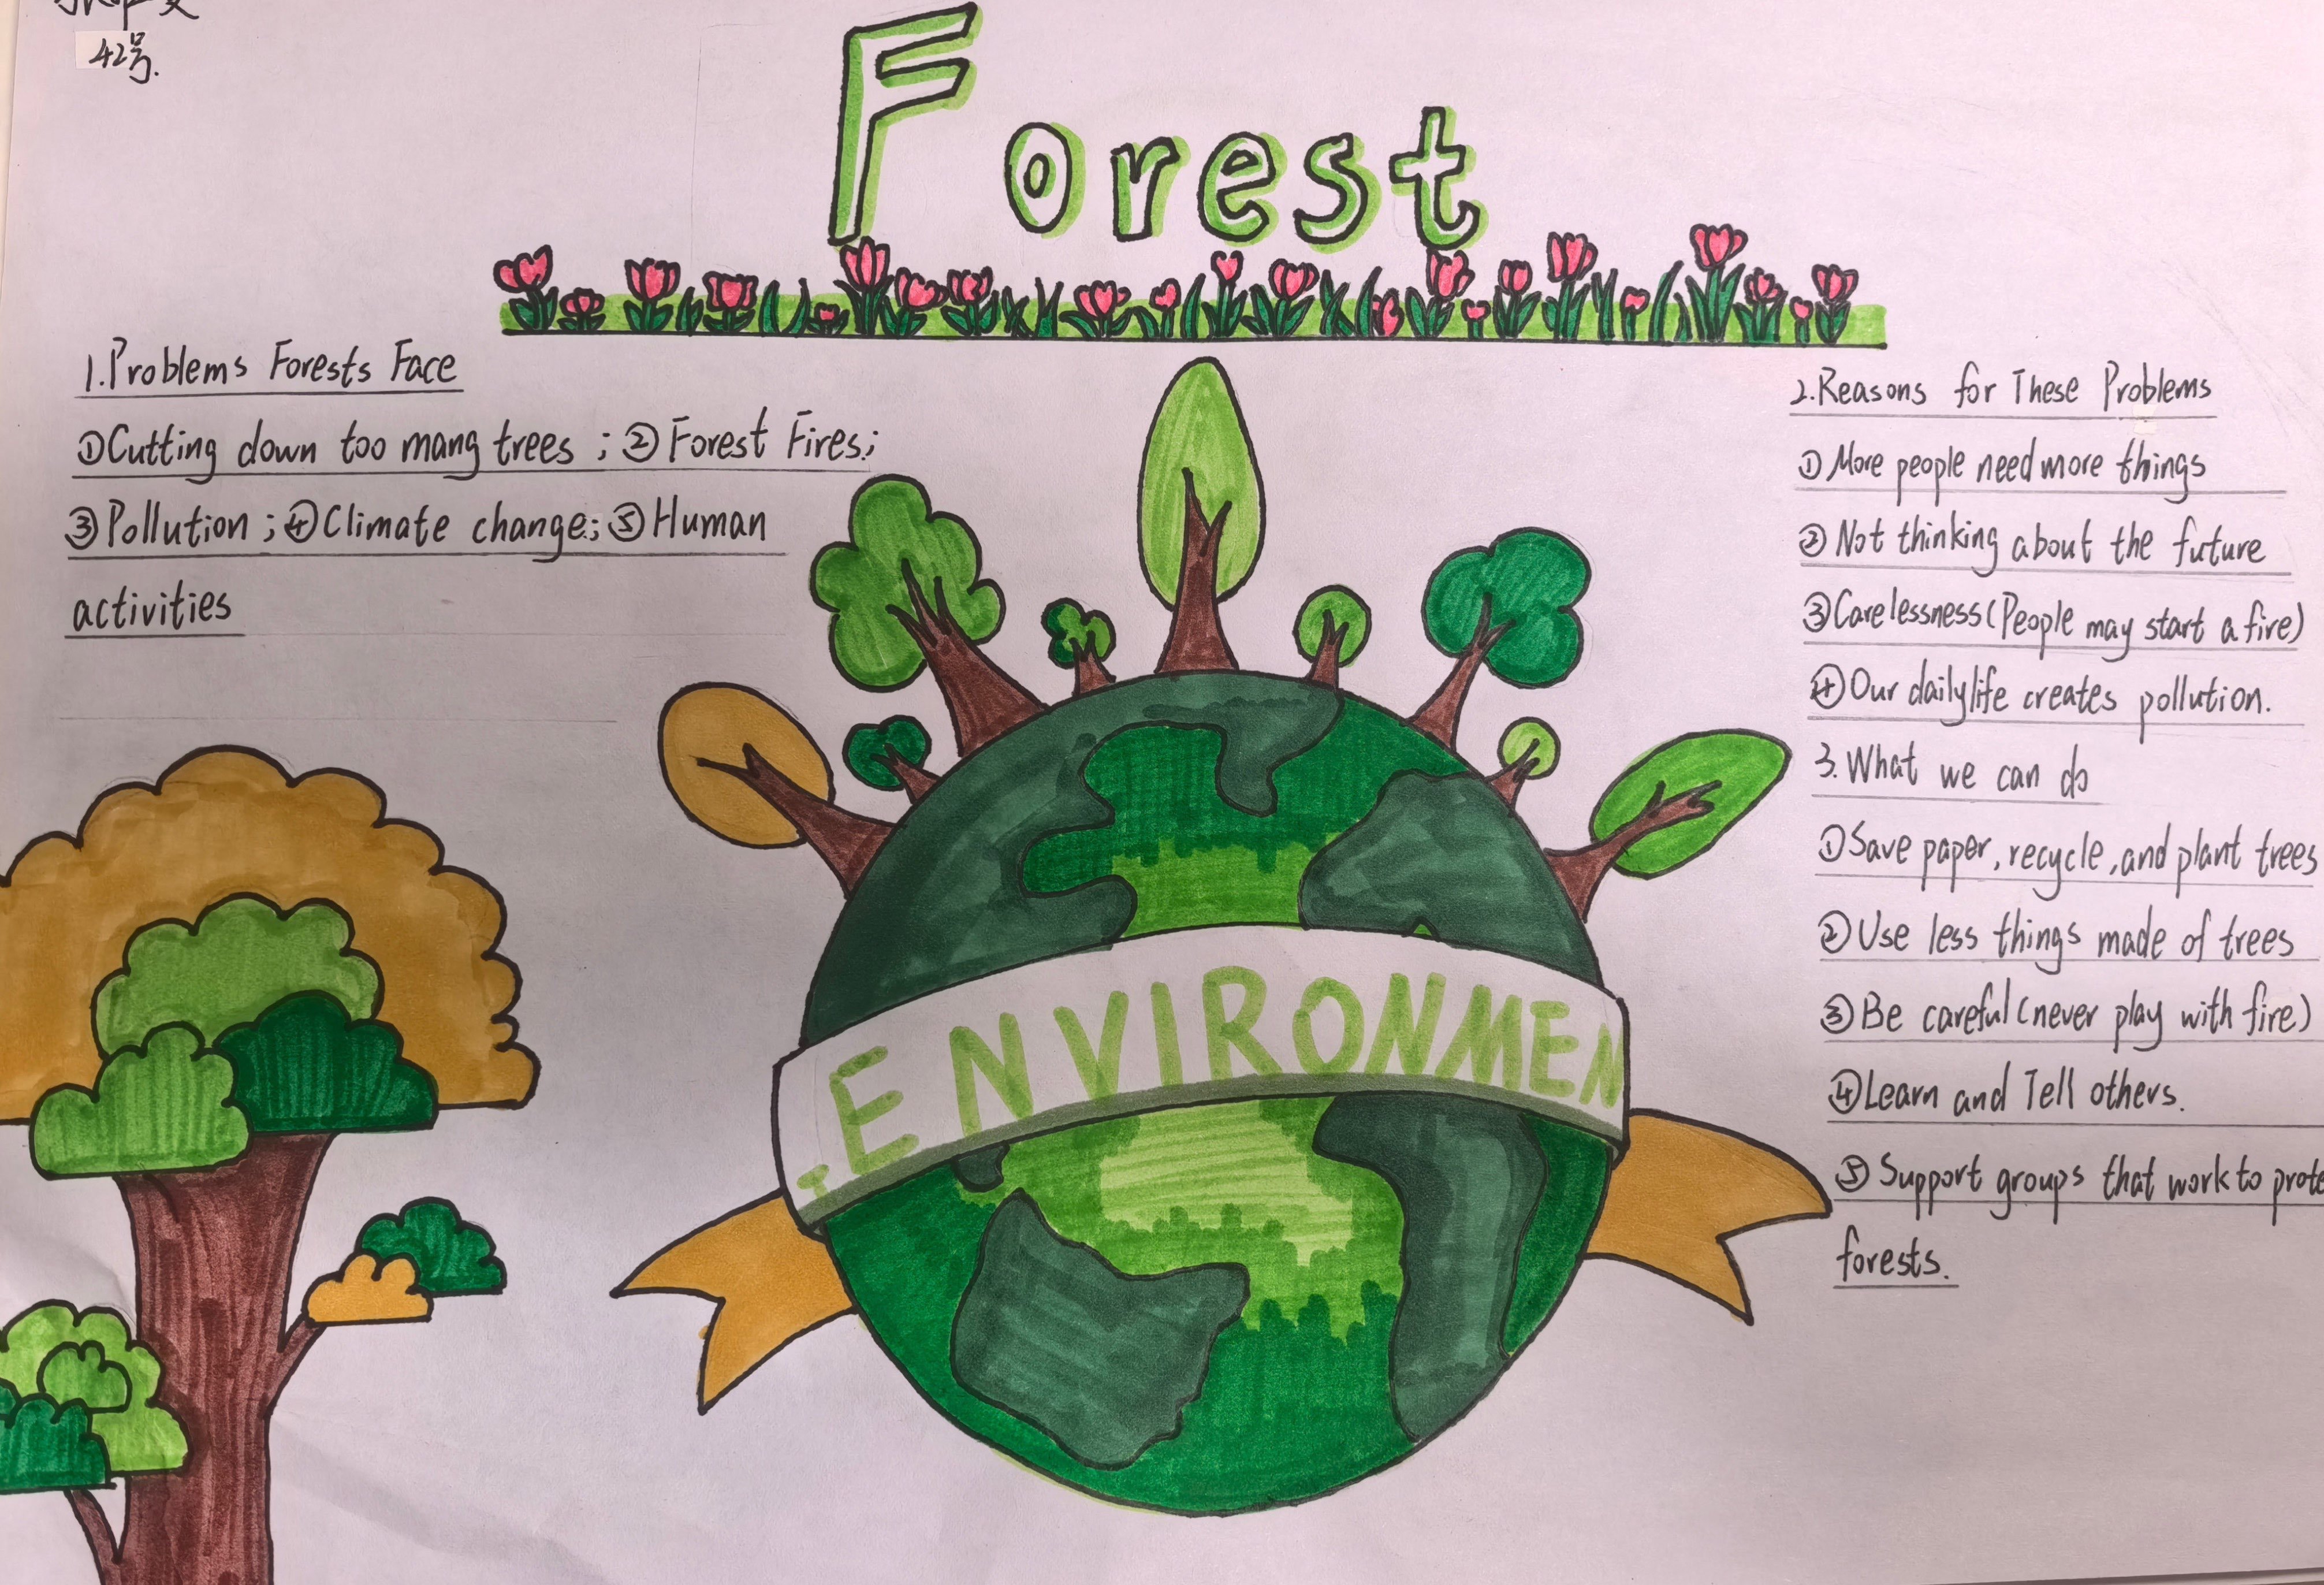 42号.
Forest
1.Problems Forests Face
①Cutting down too mang trees ; ②Forest Fires;
③Pollution ; ④Climate change; ⑤Human
activities
2.Reasons for These Problems
①More people need more things
②Not thinking about the future
③Carelessness (People may start a fire)
④Our daily life creates pollution.
3.What we can do
①Save paper, recycle, and plant trees
②Use less things made of trees
③Be careful (never play with fire)
④Learn and Tell others.
⑤Support groups that work to prote
forests.
ENVIRONMEN